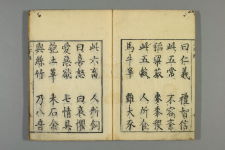 曰仁義　禮智信
此五常　不容紊
稻粱菽　麥黍稷
此五穀　人所食
馬牛羊　雞犬豕
此六畜　人所飼
曰喜怒　曰哀懼
愛惡欲　七情具
匏土革　木石金
與絲竹　乃八音